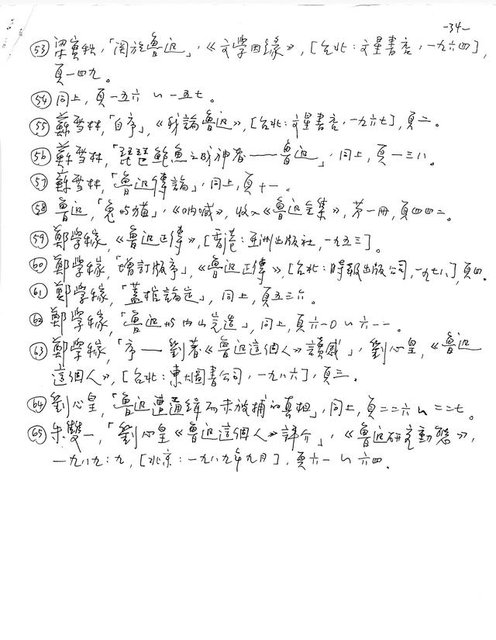 -34-
㊼梁實秋,「關於魯迅」,《文學因緣》,[台北:文星書店,一九六四],
頁一四九。
54同上,頁一五六~一五七。
55蘇雪林,「自序」,《我論魯迅》,[台北:文星書店,一九六七],頁二。
56蘇雪林,「琵琶鮑魚之成神者——魯迅」,同上,頁一三八。
57蘇雪林,「魯迅傳論」,同上,頁十一。
58魯迅,「兔與貓」,《吶喊》,收入《魯迅全集》,第一冊,頁四四二。
59鄭學稼,《魯迅正傳》,[香港:亞洲出版社,一九五三]。
60鄭學稼,「增訂版序」,《魯迅正傳》,[台北:時報出版公司,一九七八],頁四。
61鄭學稼,「蓋棺論定」,同上,頁五三六。
62鄭學稼,「魯迅與內山完造」,同上,頁六一0~六一一。
63鄭學稼,「序——劉著《魯迅這個人》讀感」,劉心皇,《魯迅
這個人》,[台北:東大圖書公司,一九八六],頁三。
64劉心皇,「魯迅遭通緝而未被捕的真相」,同上,頁二二六~二二七。
65朱雙一,「劉心皇《魯迅這個人》評介」,《魯迅研究動態》,
一九八九:九,[北京:一九八九年九月],頁六一~六四。